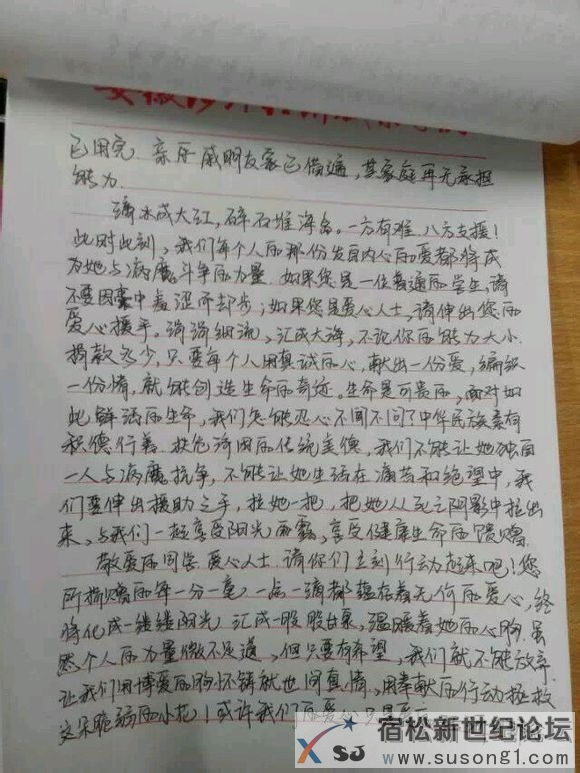 已用完. 亲所戚朋友家已借遍, 其家庭再无承担
能力.
滴水成大江, 碎石堆海岛。一方有难, 八方支援!
此时此刻, 我们每个人的那份发自内心的爱都将成
为她与病魔斗争的力量. 如果您是一位普通的学生, 请
不要因囊中羞涩而却步; 如果您是爱心人士, 请伸出您的
爱心援手。涓涓细流, 汇成大海, 不论你的能力大小.
捐款多少, 只要每个人用真诚的心, 献出一份爱, 编织
一份情, 就能创造生命的奇迹。生命是可贵的, 面对如
此鲜活的生命, 我们怎能忍心不闻不问? 中华民族素有
积德行善. 扶危济困的传统美德, 我们不能让她独自
一人与病魔抗争, 不能让她生活在痛苦和绝望中, 我
们要伸出援助之手, 拉她一把, 把她从死亡阴影中拉出
来, 与我们一起享受阳光雨露, 享受健康生命的馈赠.
敬爱的同学. 爱心人士. 请你们立刻行动起来吧! 您
所捐赠的每一分一毫, 一点一滴都蕴存着无价的爱心, 终
将化成一缕缕阳光, 汇成一股股甘泉, 温暖着她的心胸. 虽
然个人的力量微不足道, 但只要有希望, 我们就不能放弃.
让我们用博爱的胸怀铸就世间真情, 用奉献的行动拯救
这朵脆弱的小花! 或许我们的爱心只是
宿松新世纪论坛
XSJ
www.susong1.com